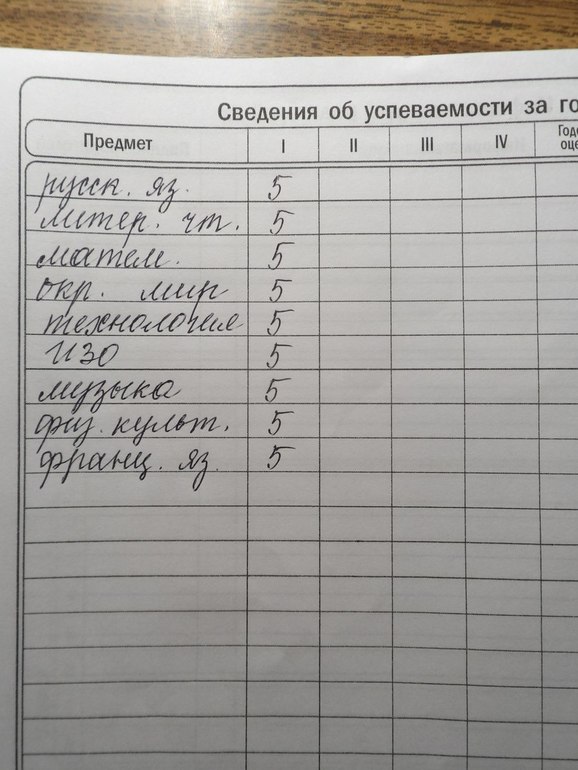 Сведения об успеваемости за го
Предмет I II III IV Годо оце
русск. яз. 5
литер. чт. 5
матем. 5
окр. мир 5
технология 5
ИЗО 5
музыка 5
физ. культ. 5
франц. яз. 5